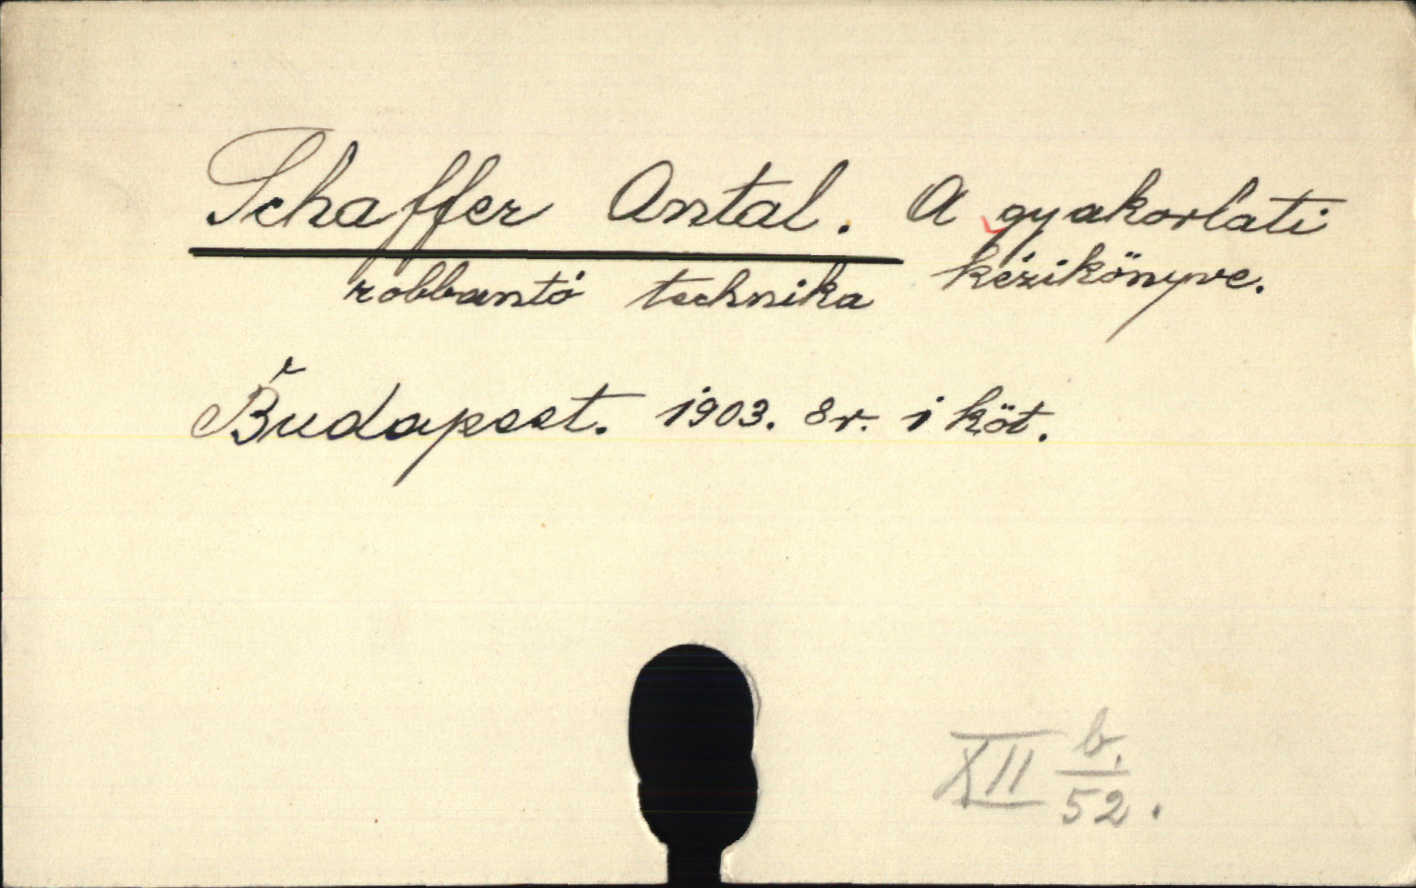 Schaffer Antal. A gyakorlati
robbantó technika kézikönyve.
Budapest. 1903. 8r. 1 köt.
XII b.
52.